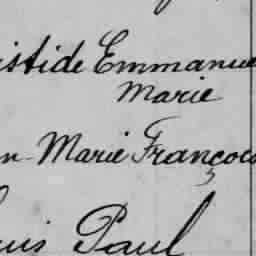 istide Emmanue
Marie
n Marie François
uis Paul